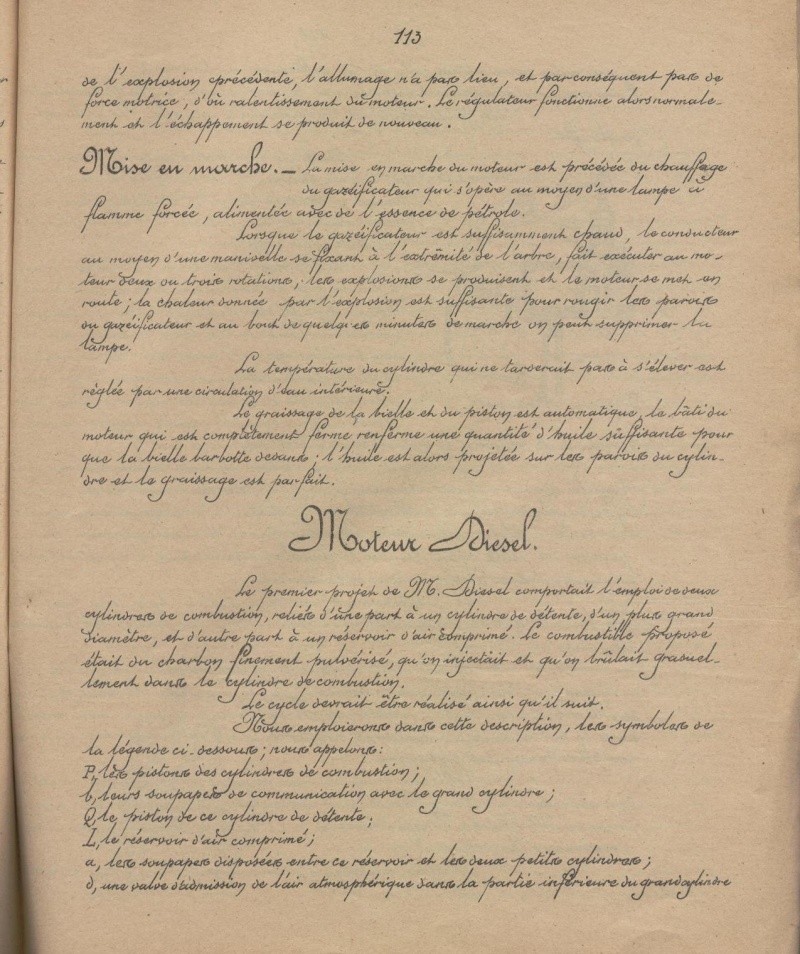 113
de l'explosion précédente, l'allumage n'a pas lieu, et par conséquent pas de
force motrice, d'où ralentissement du moteur. Le régulateur fonctionne alors normale-
ment et l'échappement se produit de nouveau.
Mise en marche. — La mise en marche du moteur est précédée du chauffage
du gazéificateur qui s'opère au moyen d'une lampe à
flamme forcée, alimentée avec de l'essence de pétrole.
Lorsque le gazéificateur est suffisamment chaud, le conducteur
au moyen d'une manivelle se fixant à l'extrêmité de l'arbre, fait exécuter au mo-
teur deux ou trois rotations, les explosions se produisent et le moteur se met en
route; la chaleur donnée par l'explosion est suffisante pour rougir les parois
du gazéificateur et au bout de quelques minutes de marche on peut supprimer la
lampe.
La température du cylindre qui ne tarderait pas à s'élever est
réglée par une circulation d'eau intérieure.
Le graissage de la bielle et du piston est automatique, le bâti du
moteur qui est complètement fermé renferme une quantité d'huile suffisante pour
que la bielle barbotte dedans; l'huile est alors projetée sur les parois du cylin-
dre et le graissage est parfait.
Moteur Diesel.
Le premier projet de M. Diesel comportait l'emploi de deux
cylindres de combustion, reliés d'une part à un cylindre de détente, d'un plus grand
diamètre, et d'autre part à un réservoir d'air comprimé. Le combustible proposé
était du charbon finement pulvérisé, qu'on injectait et qu'on brûlait graduel-
lement dans le cylindre de combustion.
Le cycle devrait être réalisé ainsi qu'il suit.
Nous emploierons dans cette description, les symboles de
la légende ci-dessous; nous appelons:
P, les pistons des cylindres de combustion;
b, leurs soupapes de communication avec le grand cylindre;
Q, le piston de ce cylindre de détente;
L, le réservoir d'air comprimé;
a, les soupapes disposées entre ce réservoir et les deux petits cylindres;
d, une valve d'admission de l'air atmosphérique dans la partie inférieure du grand cylindre